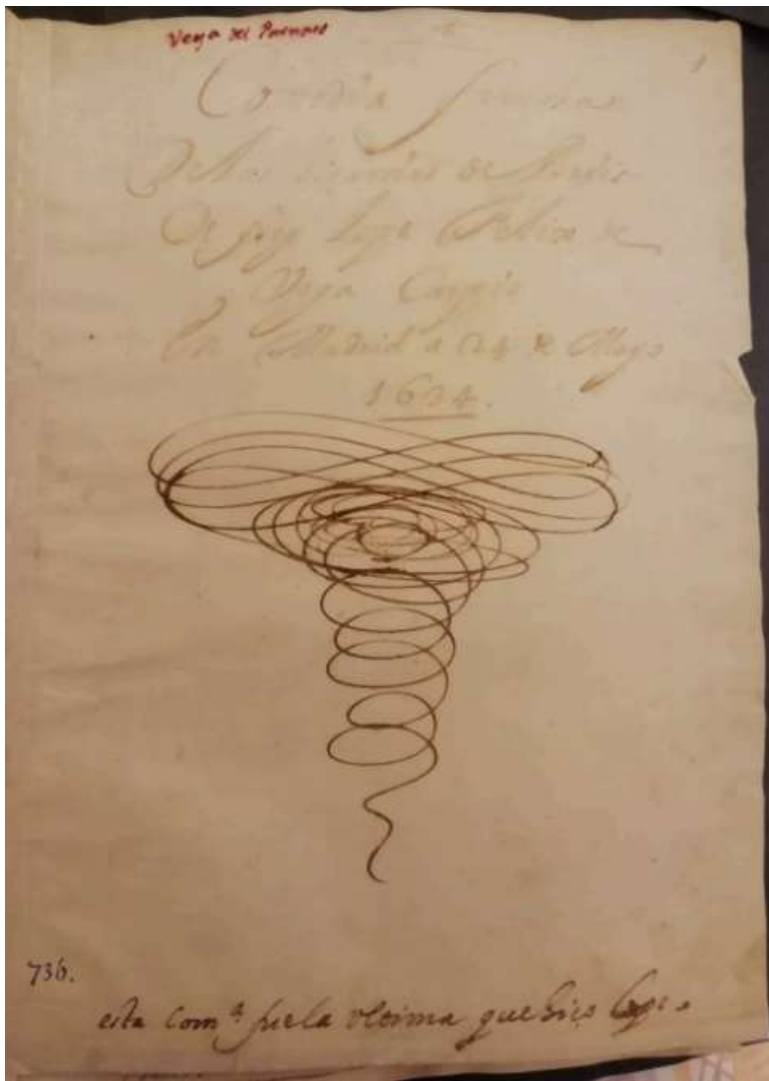 Vega del Parnaso
1
Comedia famosa
De las bizarrias de Belisa
De frey Lope Felix de
Vega Carpio
En Madrid a 24 de Mayo
1634.
736.
esta com.ª fue la vltima que hiço lope.